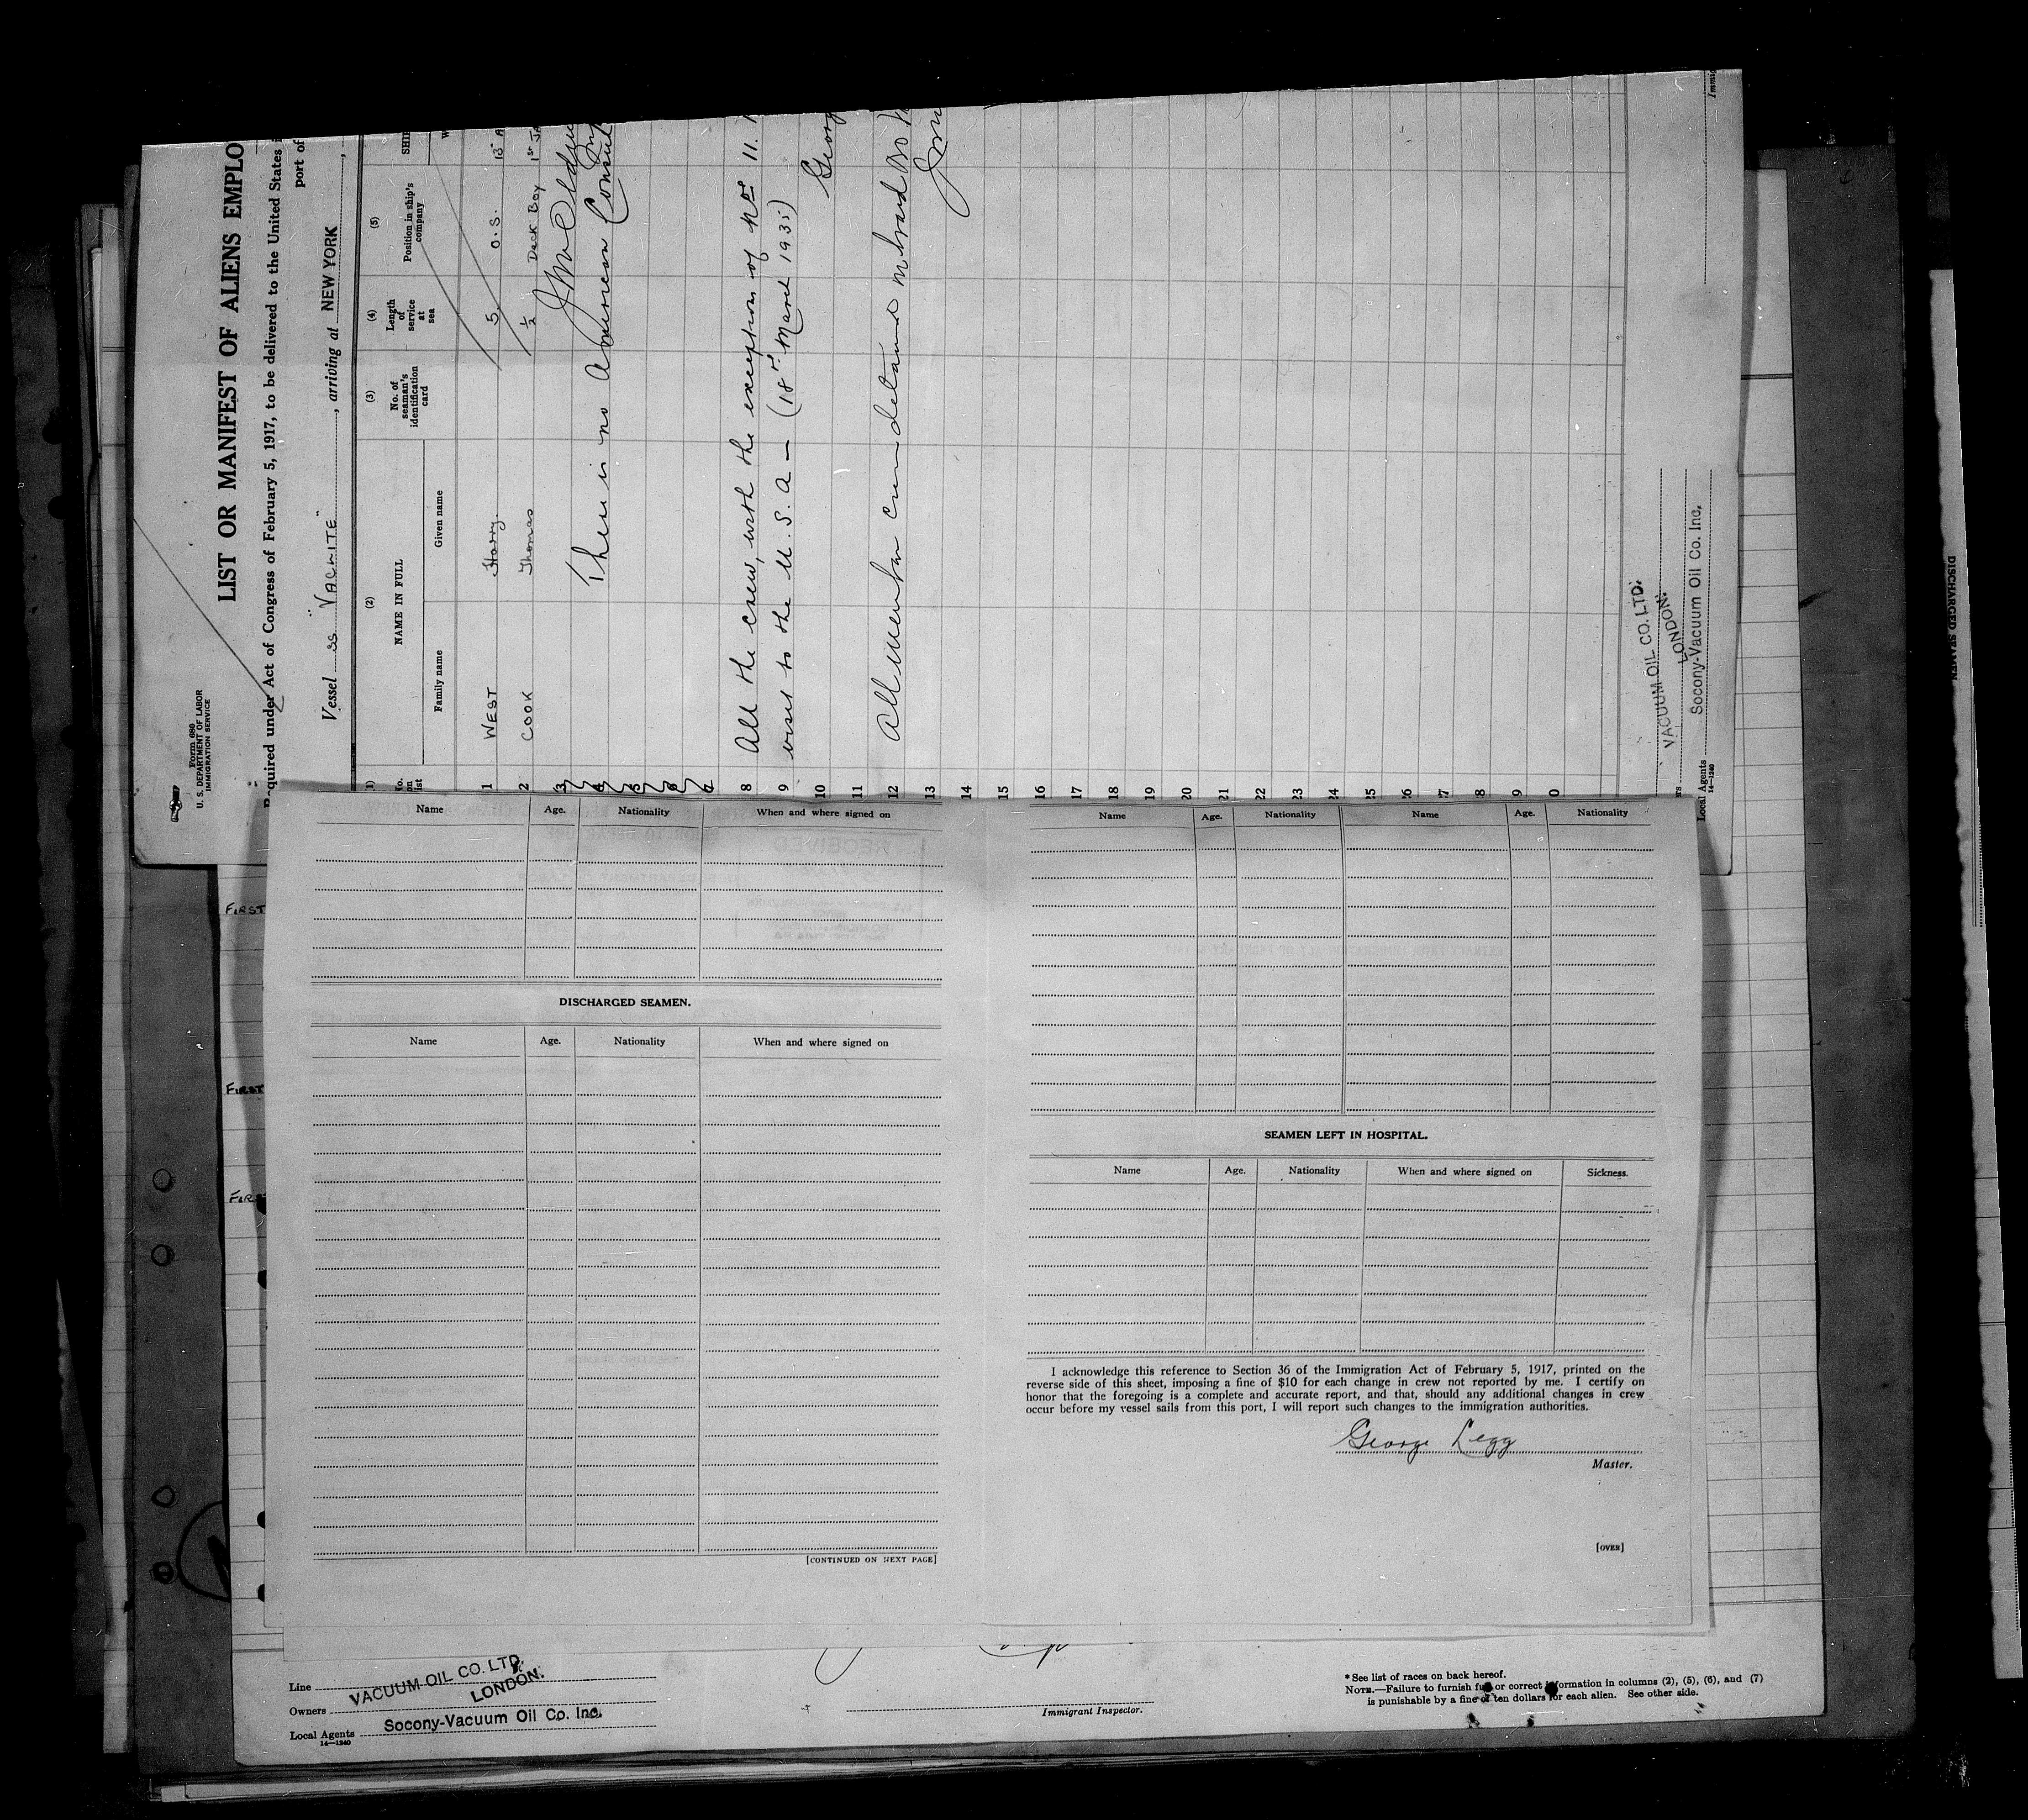 Form 680
U. S. DEPARTMENT OF LABOR
IMMIGRATION SERVICE
LIST OR MANIFEST OF ALIENS EMPLO
Required under Act of Congress of February 5, 1917, to be delivered to the United States
port of
Vessel SS "VACLITE", arriving at NEW YORK
(1) (2) (3) (4) (5)
NAME IN FULL
No. of seaman's identification card
Length of service at sea
Position in ship's company
SHI
Family name Given name
1 WEST Harry. 5 O.S.
2 COOK Thomas ½ Deck Boy 1st
3
4 There is no American Consul
5
6
7
8 All the crew, with the exception of No 11.
9 visit to the U.S.A — (18th March 1935)
10 Georg
11
12 All members crew detained on board
13
14
15
16
17
18
19
20
21
22
23
24
25
26
27
28
29
30
VACUUM OIL CO. LTD.
LONDON.
Local Agents Socony-Vacuum Oil Co. Inc.
14—1240
FIRST
FIRST
FIRS
Name Age. Nationality When and where signed on
DISCHARGED SEAMEN.
Name Age. Nationality When and where signed on
[CONTINUED ON NEXT PAGE]
Name Age. Nationality Name Age. Nationality
SEAMEN LEFT IN HOSPITAL.
Name Age. Nationality When and where signed on Sickness.
I acknowledge this reference to Section 36 of the Immigration Act of February 5, 1917, printed on the
reverse side of this sheet, imposing a fine of $10 for each change in crew not reported by me. I certify on
honor that the foregoing is a complete and accurate report, and that, should any additional changes in crew
occur before my vessel sails from this port, I will report such changes to the immigration authorities.
George Legg
Master.
[OVER]
Line
VACUUM OIL CO. LTD.
Owners LONDON.
Local Agents Socony-Vacuum Oil Co. Inc.
14—1240
Immigrant Inspector.
*See list of races on back hereof.
NOTE.—Failure to furnish full or correct information in columns (2), (5), (6), and (7)
is punishable by a fine of ten dollars for each alien. See other side.
DISCHARGED SEAMEN